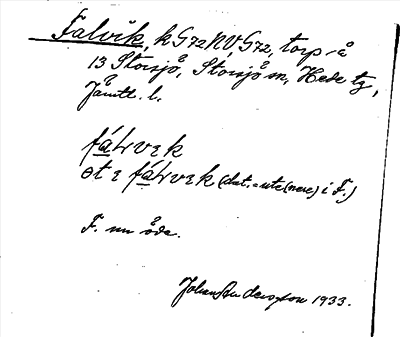 Falvik, k G72 NV G72, torp å
13 Storsjö, Storsjö sn, Hede tg,
Jämtl. l.
fáLvɛk
ɵt ɪ fáLvɛk (dat. = ute (nere) i F.)
F. nu öde.
Johan Anderzson 1933.